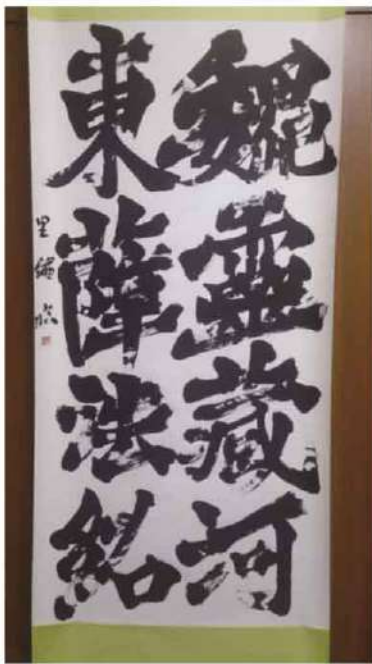 魏靈蔵河
東薛法紹
里鏽臨